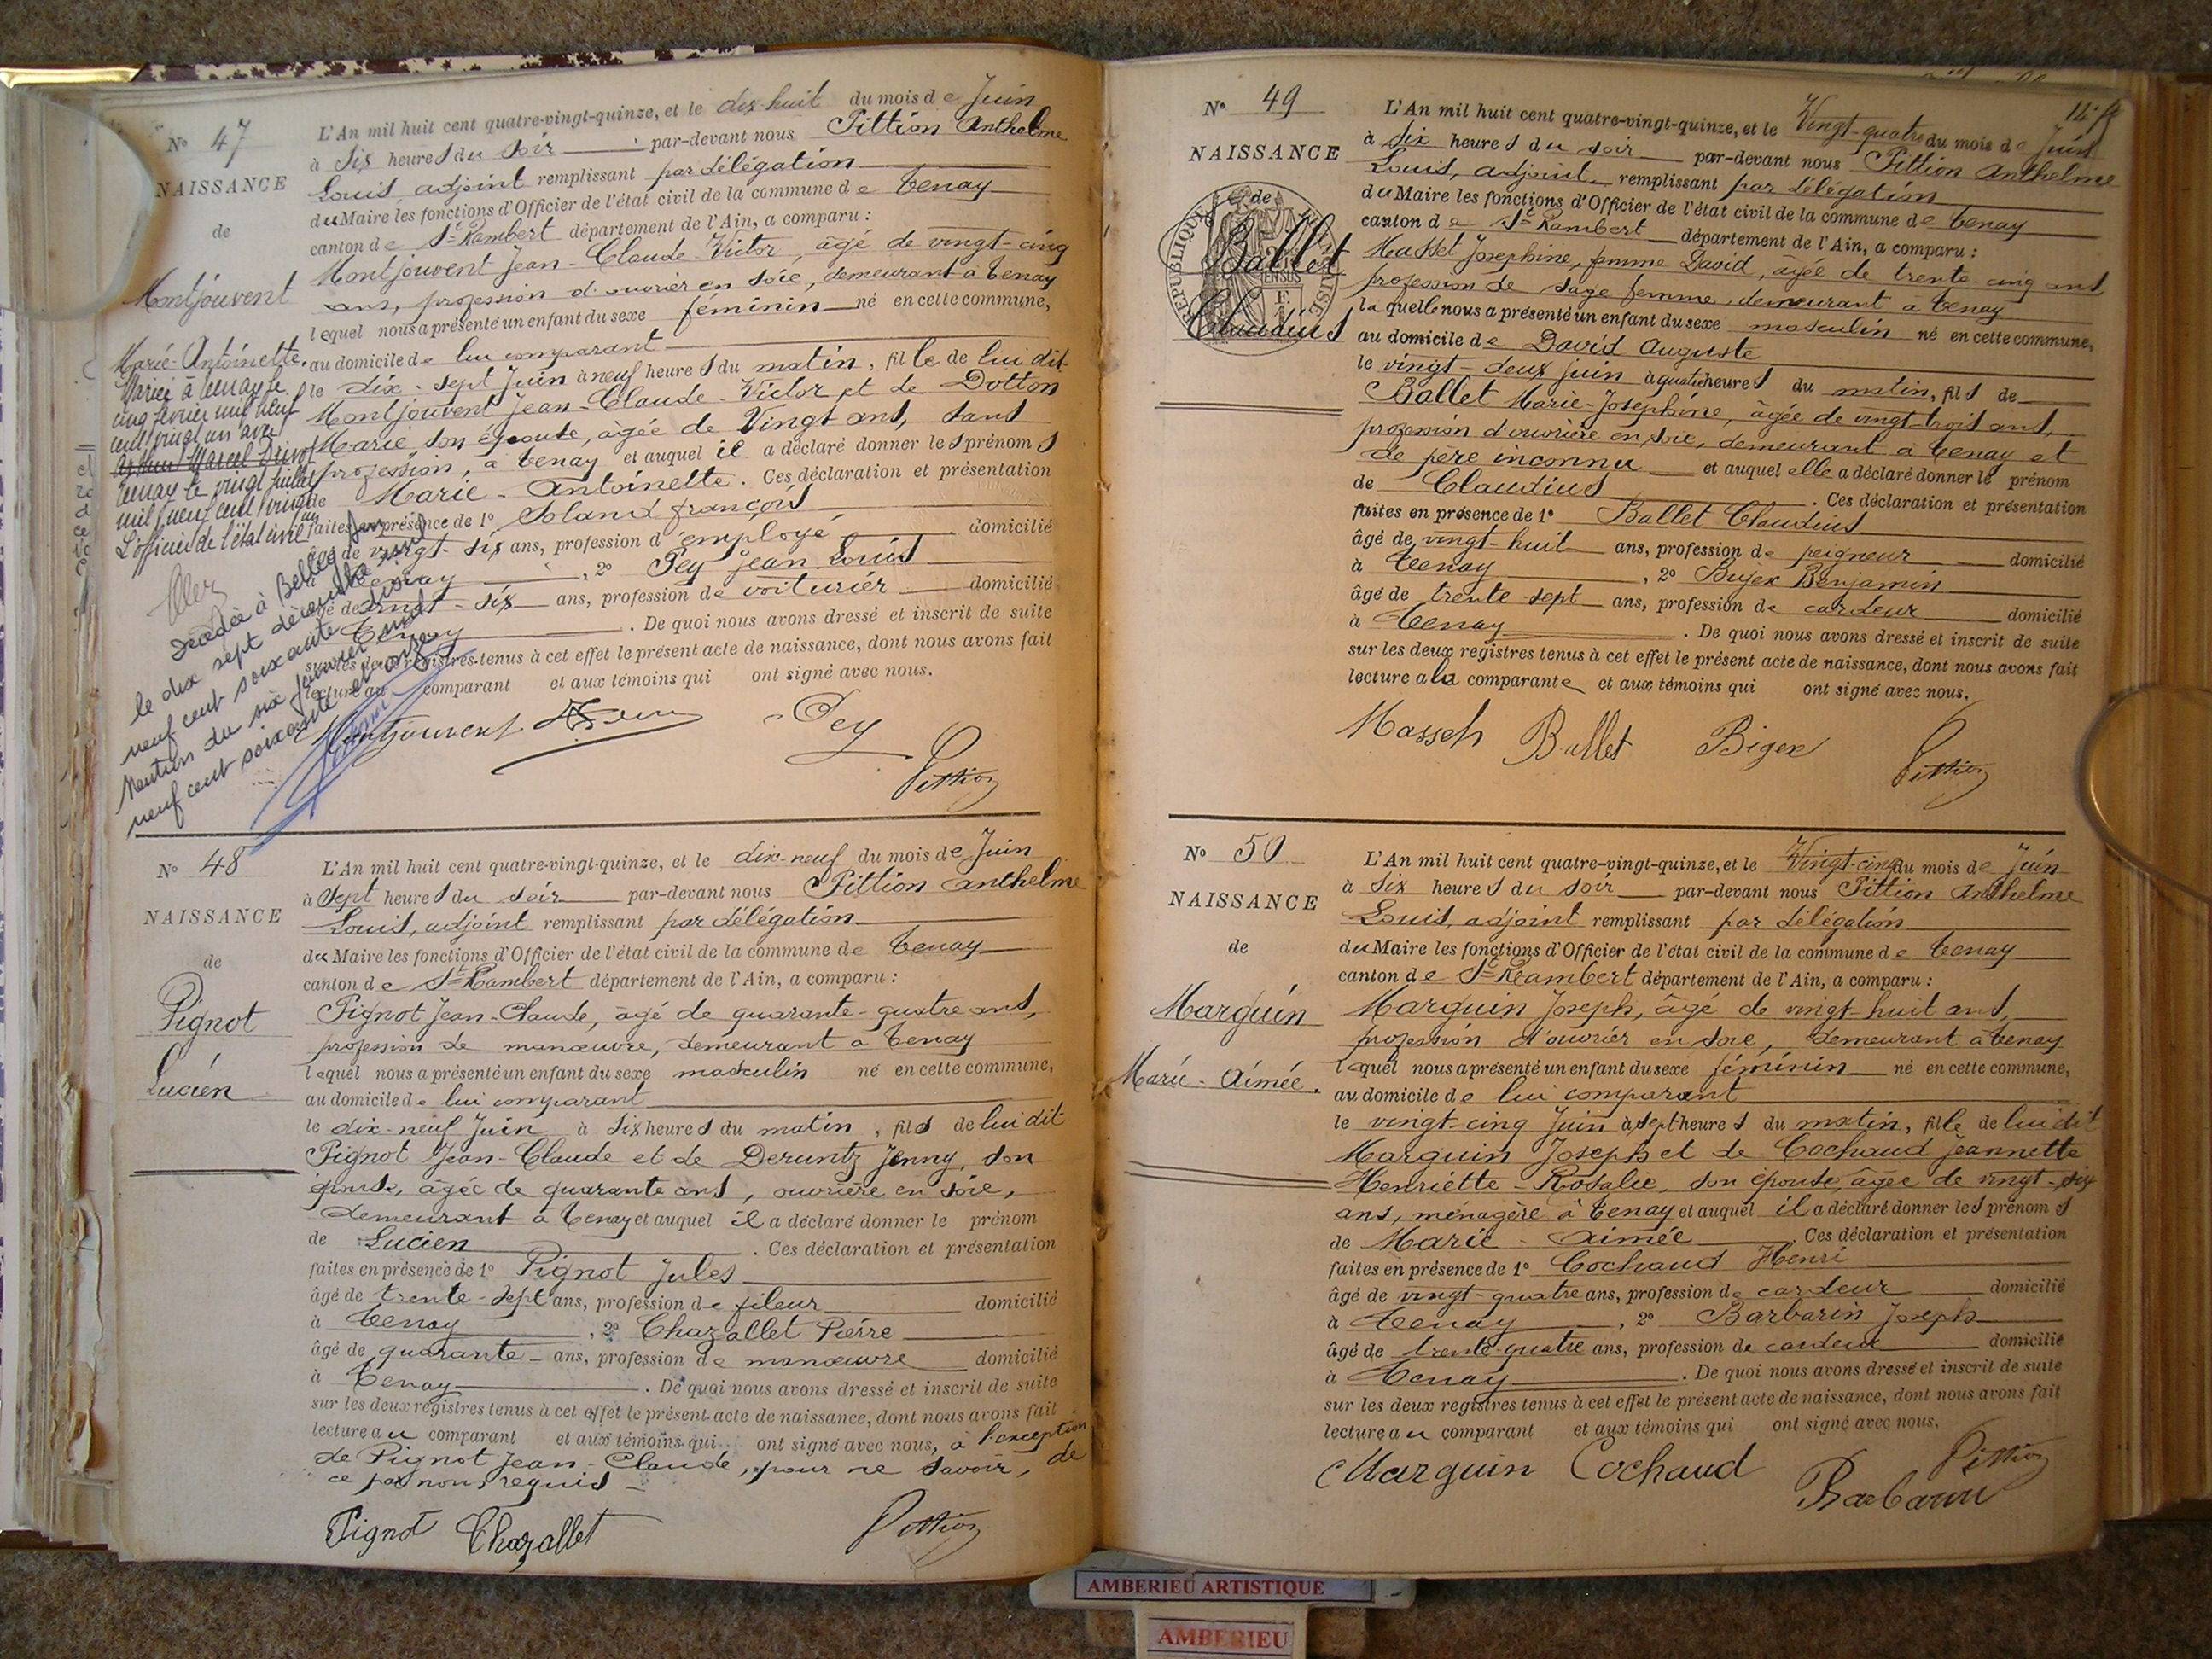 N° 47
NAISSANCE
de
Montjouvent
Marie-Antoinette.
Mariée à Tenay le
cinq février mil neuf
cent vingt un avec
Tenay le vingt juillet
mil neuf cent vingt un
L'officier de l'état civil
Décédée à Belley
le dix sept décembre mil
neuf cent soixante dix
Mention du six janvier mil
neuf cent soixante et onze
L'An mil huit cent quatre-vingt-quinze, et le dix-huit du mois de Juin
à six heures du soir par-devant nous Pittion Anthelme
Louis, adjoint remplissant par délégation
du Maire les fonctions d'Officier de l'état civil de la commune de Tenay
canton de St Rambert département de l'Ain, a comparu :
Montjouvent Jean-Claude-Victor, âgé de vingt-cinq
ans, profession d'ouvrier en soie, demeurant à Tenay
lequel nous a présenté un enfant du sexe féminin né en cette commune,
au domicile de lui comparant
le dix-sept Juin à neuf heures du matin, fille de lui dit
Montjouvent Jean-Claude-Victor et de Dotton
Marie, son épouse, âgée de Vingt ans, sans
profession, à Tenay et auquel il a déclaré donner les prénoms
de Marie-Antoinette. Ces déclaration et présentation
faites en présence de 1° Soland françois
âgé de vingt-six ans, profession d'employé domicilié
à Tenay, 2° Pey Jean Louis
âgé de vingt-six ans, profession de voiturier domicilié
à Tenay. De quoi nous avons dressé et inscrit de suite
sur les deux registres tenus à cet effet le présent acte de naissance, dont nous avons fait
lecture au comparant et aux témoins qui ont signé avec nous.
Montjouvent Pey
Pittion
N° 48
NAISSANCE
de
Pignot
Lucien
L'An mil huit cent quatre-vingt-quinze, et le dix-neuf du mois de Juin
à sept heures du soir par-devant nous Pittion Anthelme
Louis, adjoint remplissant par délégation
du Maire les fonctions d'Officier de l'état civil de la commune de Tenay
canton de St Rambert département de l'Ain, a comparu :
Pignot Jean-Claude, âgé de quarante-quatre ans,
profession de manœuvre, demeurant à Tenay
lequel nous a présenté un enfant du sexe masculin né en cette commune,
au domicile de lui comparant
le dix-neuf Juin à six heures du matin, fils de lui dit
Pignot Jean-Claude et de Deruntz Jenny, son
épouse, âgée de quarante ans, ouvrière en soie,
demeurant à Tenay et auquel il a déclaré donner le prénom
de Lucien. Ces déclaration et présentation
faites en présence de 1° Pignot Jules
âgé de trente-sept ans, profession de fileur domicilié
à Tenay, 2° Chazallet Pierre
âgé de quarante ans, profession de manœuvre domicilié
à Tenay. De quoi nous avons dressé et inscrit de suite
sur les deux registres tenus à cet effet le présent acte de naissance, dont nous avons fait
lecture au comparant et aux témoins qui ont signé avec nous, à l'exception
de Pignot Jean-Claude, pour ne savoir, de
ce par nous requis
Pignot Chazallet Pittion
N° 49
NAISSANCE
de
Ballet
Claudius
L'An mil huit cent quatre-vingt-quinze, et le Vingt-quatre du mois de Juin
à six heures du soir par-devant nous Pittion Anthelme
Louis, adjoint remplissant par délégation
du Maire les fonctions d'Officier de l'état civil de la commune de Tenay
canton de St Rambert département de l'Ain, a comparu :
Masset Josephine, femme David, âgée de trente-cinq ans
profession de sage-femme, demeurant à Tenay
laquelle nous a présenté un enfant du sexe masculin né en cette commune,
au domicile de David Auguste
le vingt-deux juin à quatre heures du matin, fils de
Ballet Marie-Josephine, âgée de vingt-trois ans,
profession d'ouvrière en soie, demeurant à Tenay et
de père inconnu et auquel elle a déclaré donner le prénom
de Claudius. Ces déclaration et présentation
faites en présence de 1° Ballet Claudius
âgé de vingt-huit ans, profession de peigneur domicilié
à Tenay, 2° Bujex Benjamin
âgé de trente-sept ans, profession de cardeur domicilié
à Tenay. De quoi nous avons dressé et inscrit de suite
sur les deux registres tenus à cet effet le présent acte de naissance, dont nous avons fait
lecture à la comparante et aux témoins qui ont signé avec nous.
Masset Ballet Bigex
Pittion
N° 50
NAISSANCE
de
Marguin
Marie-Aimée.
L'An mil huit cent quatre-vingt-quinze, et le Vingt-cinq du mois de Juin
à six heures du soir par-devant nous Pittion Anthelme
Louis, adjoint remplissant par délégation
du Maire les fonctions d'Officier de l'état civil de la commune de Tenay
canton de St Rambert département de l'Ain, a comparu :
Marguin Joseph, âgé de vingt-huit ans,
profession d'ouvrier en soie, demeurant à Tenay
lequel nous a présenté un enfant du sexe féminin né en cette commune,
au domicile de lui comparant
le vingt-cinq Juin à sept heures du matin, fille de lui dit
Marguin Joseph et de Cochaud Jeannette
Henriette-Rosalie, son épouse, âgée de vingt-six
ans, ménagère à Tenay et auquel il a déclaré donner les prénoms
de Marie-Aimée Ces déclaration et présentation
faites en présence de 1° Cochaud Henri
âgé de vingt-quatre ans, profession de cardeur domicilié
à Tenay, 2° Barbarin Joseph
âgé de trente-quatre ans, profession de cardeur domicilié
à Tenay. De quoi nous avons dressé et inscrit de suite
sur les deux registres tenus à cet effet le présent acte de naissance, dont nous avons fait
lecture au comparant et aux témoins qui ont signé avec nous.
Marguin Cochaud Pittion
Barbarin
AMBERIEU ARTISTIQUE
AMBERIEU